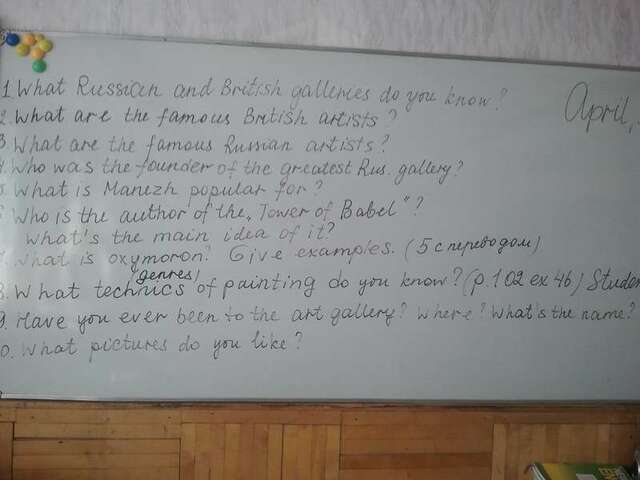 1. What Russian and British galleries do you know?
April,
2. What are the famous British artists?
3 What are the famous Russian artists?
4. Who was the founder of the greatest Rus. gallery?
5. What is Manezh popular for?
Who is the author of the „Tower of Babel"?
What's the main idea of it?
7. What is oxymoron? Give examples. (5 с переводом)
genres)
8. What technics of painting do you know? (p. 102 ex 4b) Studen
9. Have you ever been to the art gallery? Where? What's the name?
0. What pictures do you like?